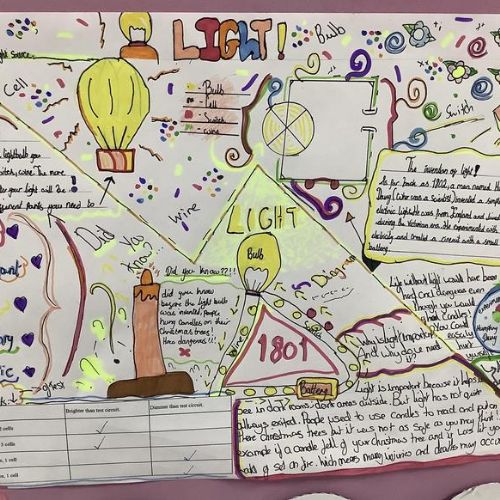 LIGHT!
Bulb
Cell
- Bulb
- Cell
- Switch
- wire
Switch
lightbulb you
switch, wire. The more
your light will be
you need to
Wire
Did
You
know
LIGHT
Bulb
Diagram
Did you know??!!
did you know
before the light bulb
was invented, people
hung candles on their
Christmas trees!
How dangerous !!
1801
Battery
wire
The invention of light!
As far back as 1802, a man named
Davy! Who was a scientist invented a simple
electric light. He was from England and lived
during the Victorian era. He experimented with
electricity and created a circuit with a small
battery.
Life without light would have been
hard and dangerous even
though you would
have Candles!
You Could
easily
hurt
yourself
Why is light important
And why do we need
it?
Light is Important because it helps us
see in dark rooms dark areas outside. But light has not quite
always existed. People used to use candles to read and put on
there christmas trees but it was not as safe as you may think!
example if a candle fell of your christmas tree and it was lit you
of set on fire. Which means many injuries and deaths may occur
Brighter than test circuit.
Dimmer than test circuit.
2 cells
3 cells
, 1 cell
, 1 cell